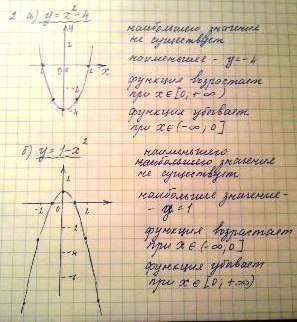 2. а) y = x² - 4
наибольшего значение
не существует
наименьшее - y = -4
функция возрастает
при x ∈ [0, +∞)
функция убывает
при x ∈ (-∞, 0]
y
-2 0 2 x
-4
б) y = 1 - x²
наименьшего
наибольшего значение
не существует
наибольшие значение -
- y = 1
функция возрастает
при x ∈ (-∞, 0]
функция убывает
при x ∈ [0, +∞)
-2 0 2